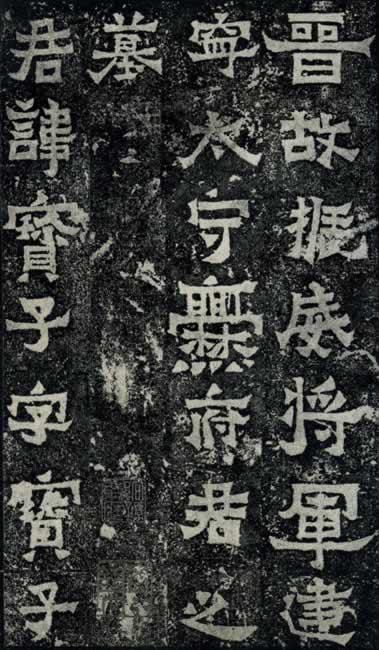 晋故振威將軍建
寧太守爨府君之
墓
君諱寳子字寳子